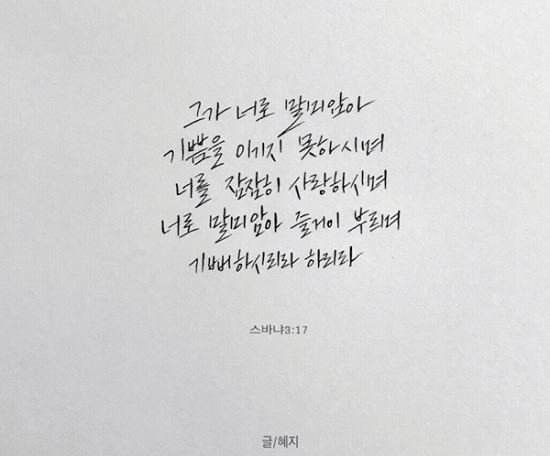 그가 너로 말미암아
기쁨을 이기지 못하시며
너를 잠잠히 사랑하시며
너로 말미암아 즐거이 부르며
기뻐하시리라 하리라
스바냐3:17
글/혜지